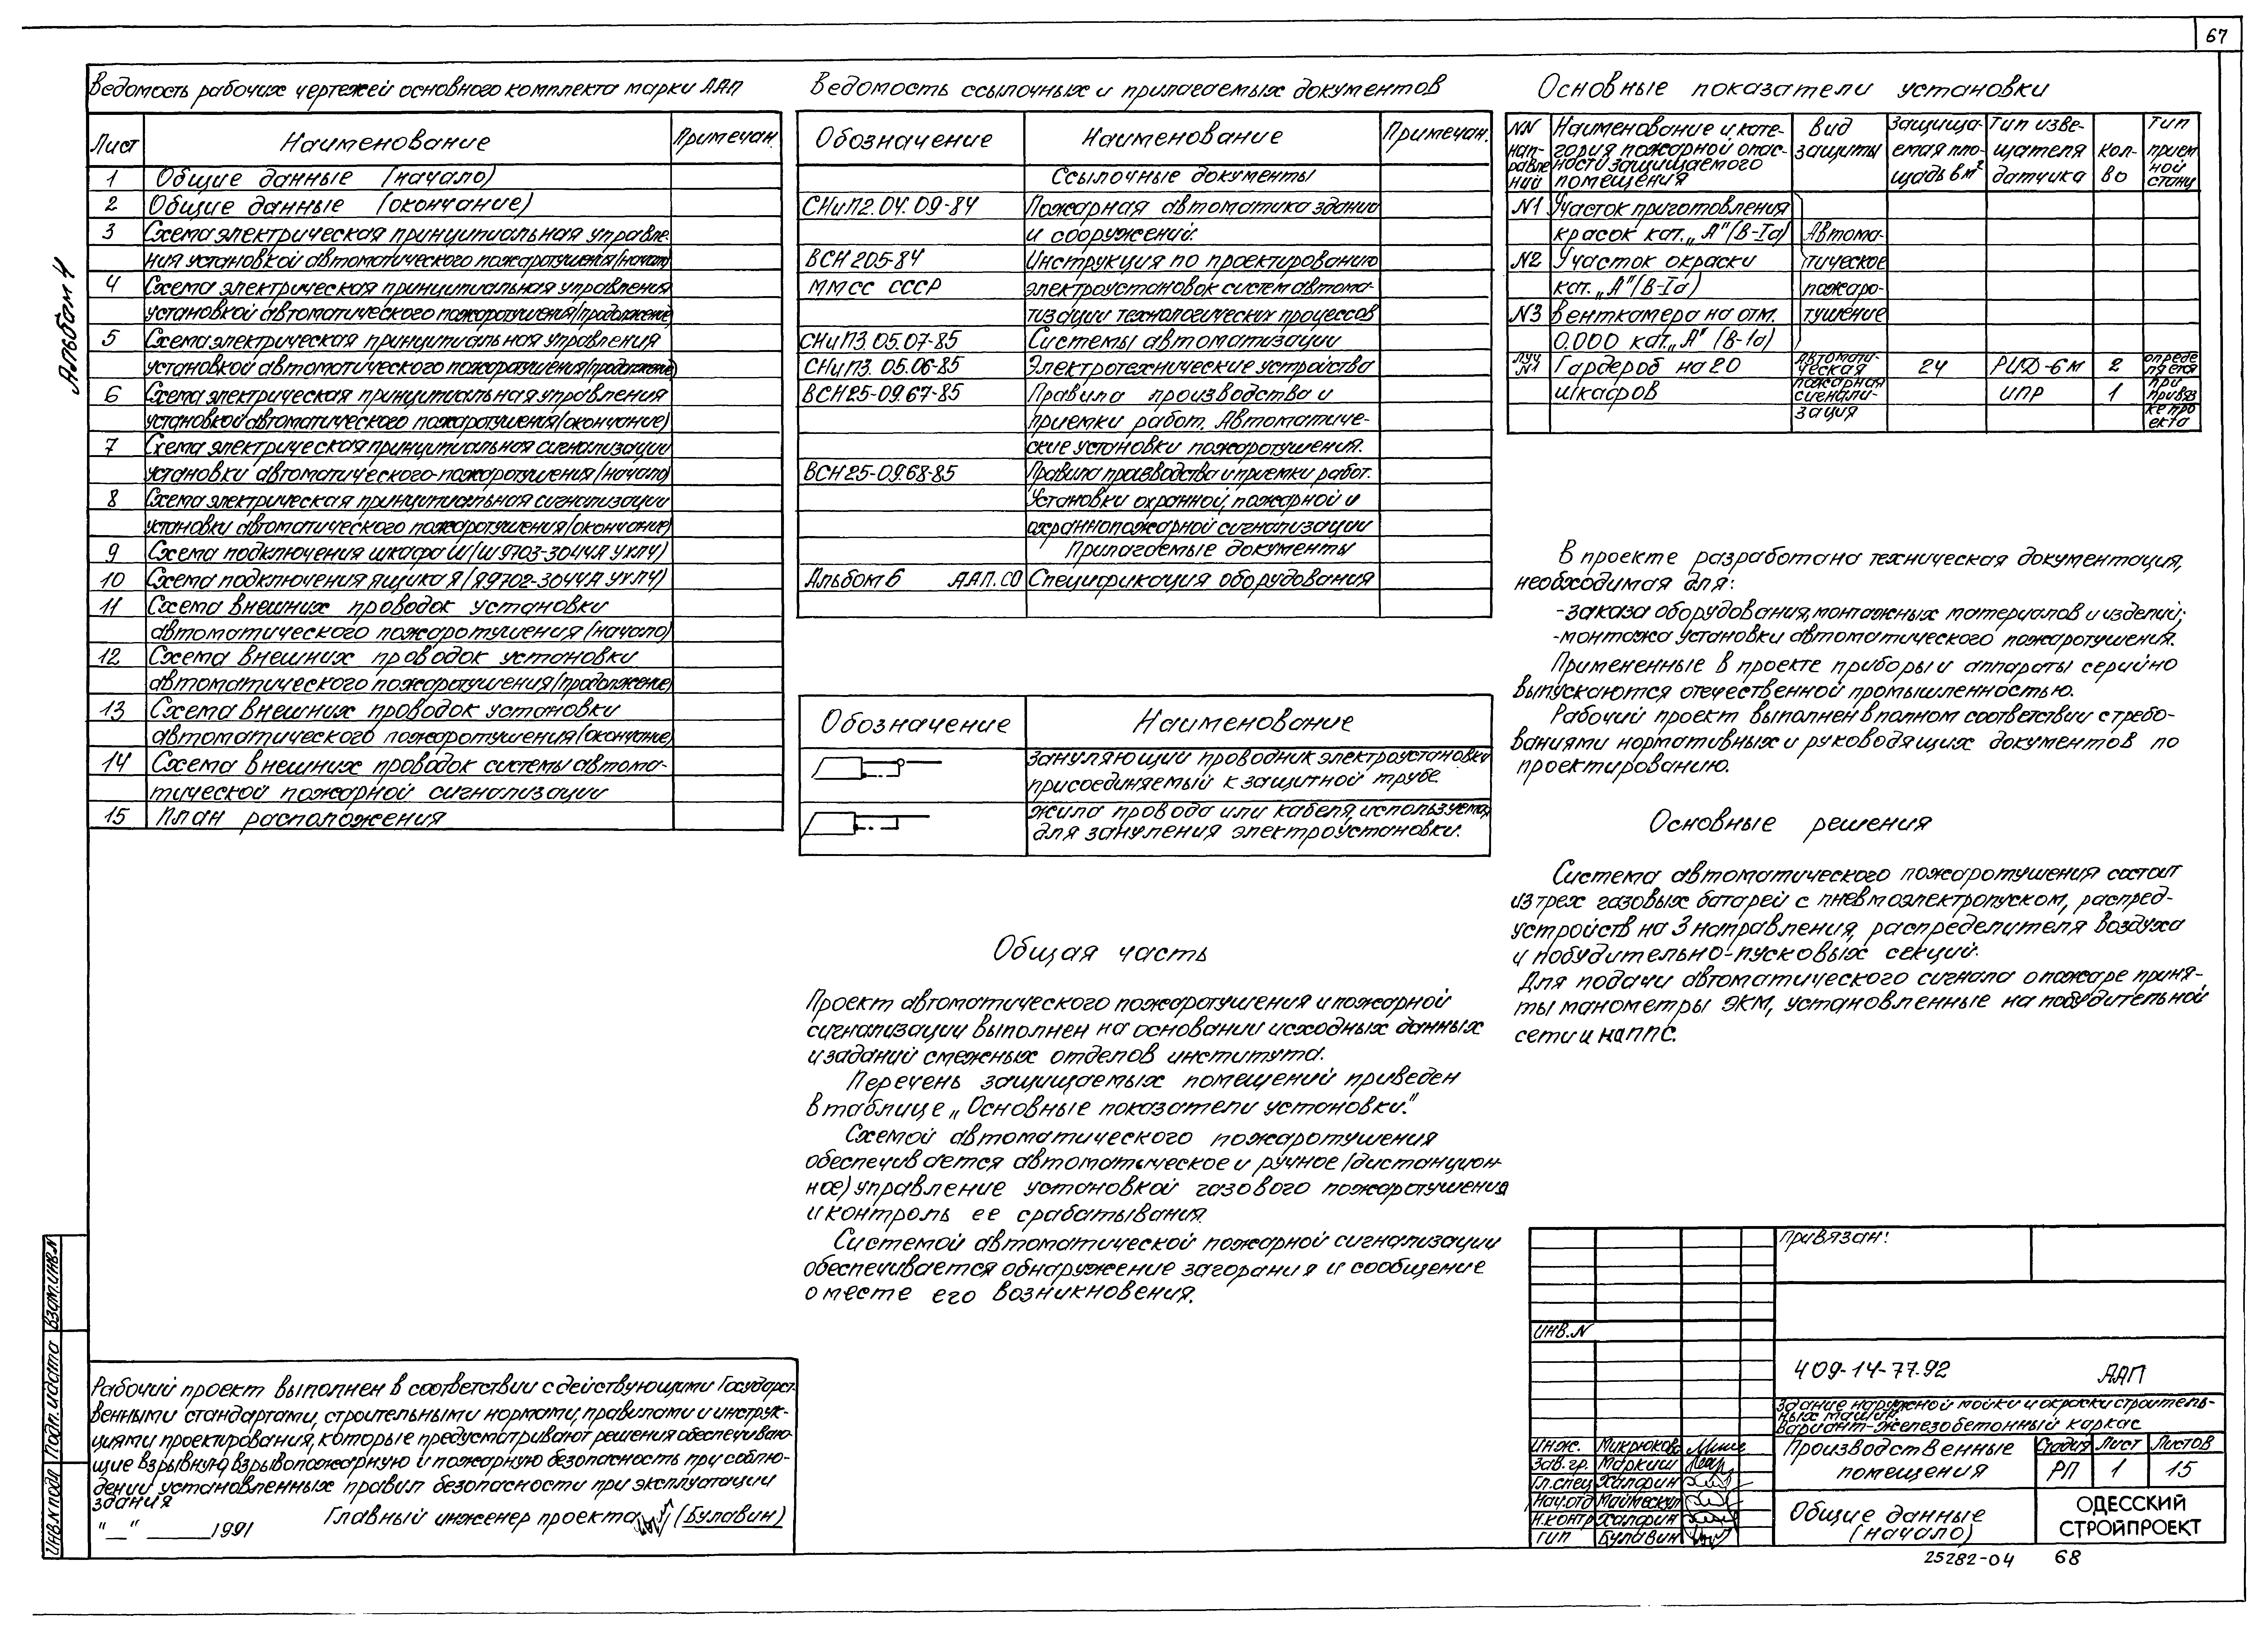 67
Альбом 4
Ведомость рабочих чертежей основного комплекта марки ААП
Лист Наименование Примечан.
1 Общие данные (начало)
2 Общие данные (окончание)
3 Схема электрическая принципиальная управле-
ния установкой автоматического пожаротушения (начало)
4 Схема электрическая принципиальная управления
установкой автоматического пожаротушения (продолжение)
5 Схема электрическая принципиальная управления
установкой автоматического пожаротушения (продолжение)
6 Схема электрическая принципиальная управления
установкой автоматического пожаротушения (окончание)
7 Схема электрическая принципиальная сигнализации
установки автоматического пожаротушения (начало)
8 Схема электрическая принципиальная сигнализации
установки автоматического пожаротушения (окончание)
9 Схема подключения шкафа Ш (Ш9703-3044А УХЛ4)
10 Схема подключения ящика Я (Я9702-3044А УХЛ4)
11 Схема внешних проводок установки
автоматического пожаротушения (начало)
12 Схема внешних проводок установки
автоматического пожаротушения (продолжение)
13 Схема внешних проводок установки
автоматического пожаротушения (окончание)
14 Схема внешних проводок системы автома-
тической пожарной сигнализации
15 План расположения
Ведомость ссылочных и прилагаемых документов
Обозначение Наименование Примечан.
Ссылочные документы
СНиП2.04.09-84 Пожарная автоматика зданий
и сооружений.
ВСН 205-84 Инструкция по проектированию
ММСС СССР электроустановок систем автома-
тизации технологических процессов
СНиП3.05.07-85 Системы автоматизации
СНиП3.05.06-85 Электротехнические устройства
ВСН25-09.67-85 Правила производства и
приемки работ. Автоматиче-
ские установки пожаротушения.
ВСН25-09.68-85 Правила производства и приемки работ.
Установки охранной, пожарной и
охраннопожарной сигнализации
Прилагаемые документы
Альбом 6 ААП.СО Спецификация оборудования
Обозначение Наименование
Зануляющий проводник электроустановки
присоединяемый к защитной трубе.
Жила провода или кабеля, используемая
для зануления электроустановки.
Общая часть
Проект автоматического пожаротушения и пожарной
сигнализации выполнен на основании исходных данных
и заданий смежных отделов института.
Перечень защищаемых помещений приведен
в таблице „Основные показатели установки."
Схемой автоматического пожаротушения
обеспечивается автоматическое и ручное (дистанцион-
ное) управление установкой газового пожаротушения
и контроль ее срабатывания.
Системой автоматической пожарной сигнализации
обеспечивается обнаружение загорания и сообщение
о месте его возникновения.
Основные показатели установки
NN нап-равле-ний Наименование и кате-гория пожарной опас-ности защищаемого помещения Вид защиты Защища-емая пло-щадь в м² Тип изве-щателя датчика Кол-во Тип прием ной станц
N1 Участок приготовления
красок кат. „А" (В-Iа) Автома-
N2 Участок окраски тическое
кат. „А" (В-Iа) пожаро-
N3 Венткамера на отм. тушение
0.000 кат. „А" (В-Iа)
Луч N1 Гардероб на 20 автомати-ческая 24 РИД-6м 2 опреде ляется
шкафов пожарная сигнали- ИПР 1 при привяз
зация ке про екта
В проекте разработана техническая документация,
необходимая для:
-заказа оборудования, монтажных материалов и изделий;
-монтажа установки автоматического пожаротушения.
Примененные в проекте приборы и аппараты серийно
выпускаются отечественной промышленностью.
Рабочий проект выполнен в полном соответствии с требо-
ваниями нормативных и руководящих документов по
проектированию.
Основные решения
Система автоматического пожаротушения состоит
из трех газовых батарей с пневмоэлектропуском, распред-
устройств на 3 направления, распределителя воздуха
и побудительно-пусковых секций.
Для подачи автоматического сигнала о пожаре приня-
ты манометры ЭКМ, установленные на побудительной
сети и на ППС.
Рабочий проект выполнен в соответствии с действующими Государст-
венными стандартами, строительными нормами, правилами и инструк-
циями проектирования, которые предусматривают решения обеспечиваю-
щие взрывную, взрывопожарную и пожарную безопасность при соблю-
дении установленных правил безопасности при эксплуатации
здания
"__" ______1991 Главный инженер проекта (Булавин)
Инв.N подл Подп. и дата Взам.инв.N
Привязан:
Инв.N
409-14-77.92 ААП
Здание наружной мойки и окраски строитель-
ных машин.
Вариант-железобетонный каркас
Инж. Микрюкова
Зав.гр. Маркиш
Гл.спец Халарин
Нач.отд Маймескул
Н.контр Халарин
ГИП Булавин
Производственные
помещения
Стадия Лист Листов
РП 1 15
Общие данные
(начало)
ОДЕССКИЙ
СТРОЙПРОЕКТ
25282-04 68